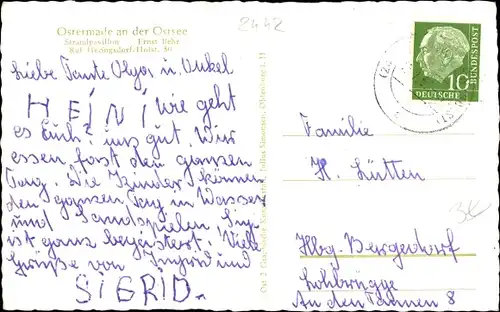 2442
Ostermade an der Ostsee
Strandpavillon Ernst Behr
Ruf Heringsdorf/Holst. 50
Liebe Tante Olga u. Onkel
HEINI wie geht
es Euch? uns gut. Wir
essen fast den ganzen
Tag. Die Kinder können
den ganzen Tag in Wasser
und Sand spielen
ist ganz begeistert. Viele
Grüße von Ingrid und
SIGRID.
10
DEUTSCHE
BUNDESPOST
Familie
H. Lütten
Hbg-Bergedorf
Lohbrügge
An den Tannen 8
3€